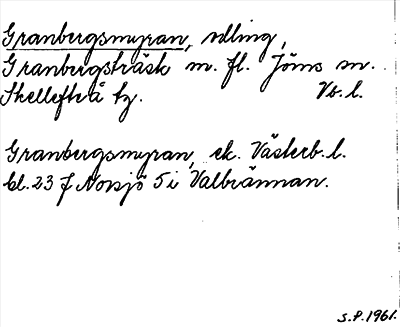 Granbergsmyran, odling,
Granbergsträsk m. fl. Jörns sn.
Skellefteå tg. Vb. l.
Granbergsmyran, ek. Västerb. l.
bl. 23 f Norsjö 5 i Valbrännan.
S.P. 1961.